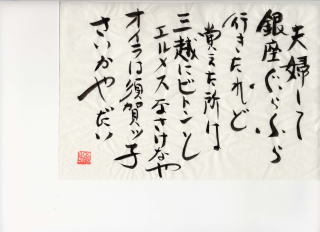 夫婦して
銀座ぶらぶら
行きたれど
貰えた所は
三越にビトンとし
エルメスなさけなや
オイラは須賀ッ子
さいかやだい